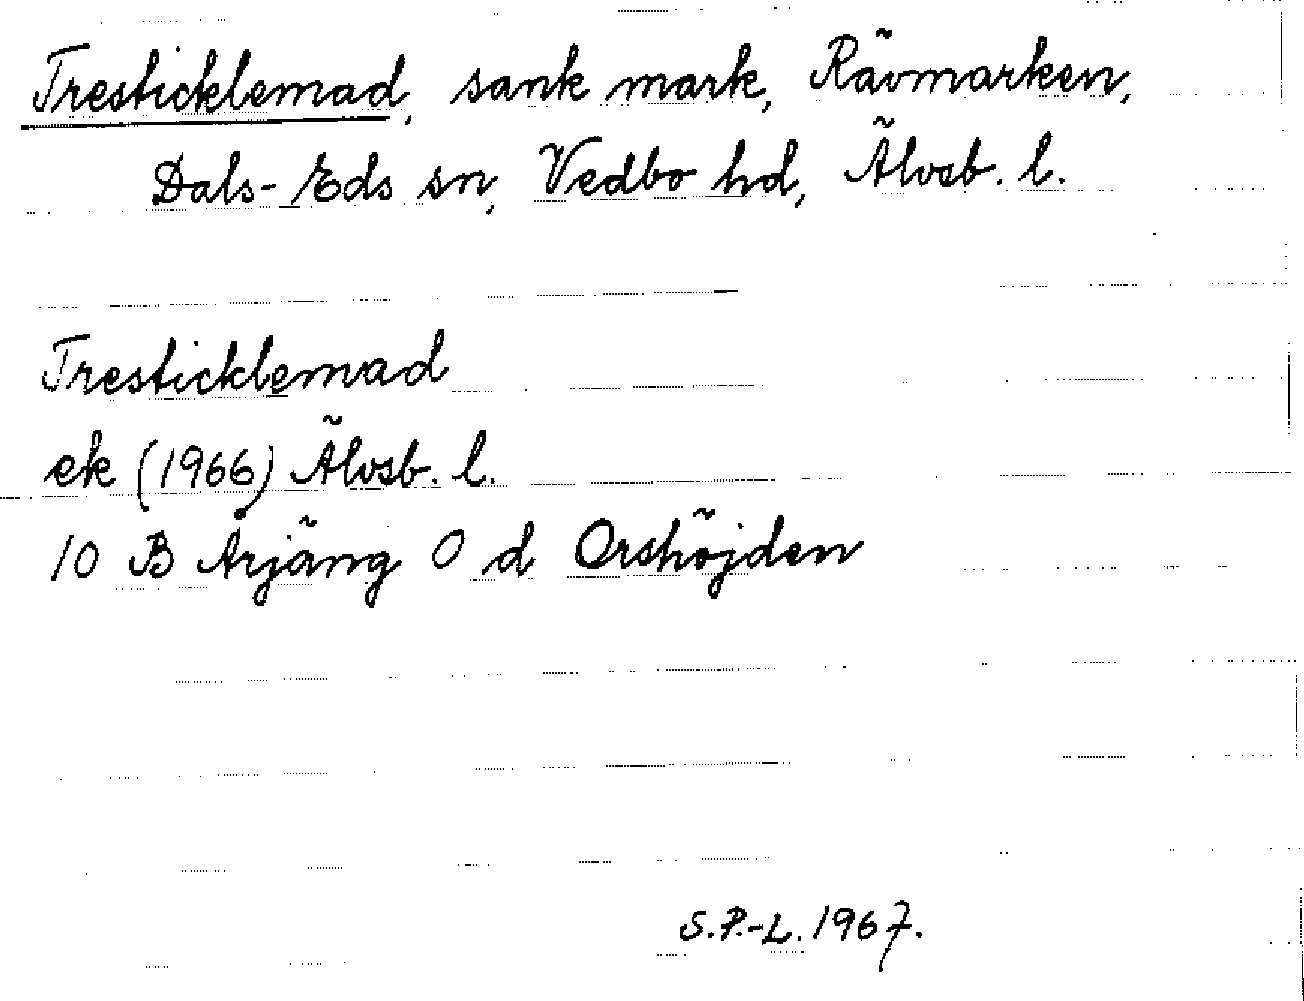 Tresticklemad, sank mark, Rävmarken,
Dals-Eds sn, Vedbo hd, Älvsb. l.
Tresticklemad
ek (1966) Älvsb. l.
10 B Årjäng 0 d Orshöjden
S.P.-L. 1967.